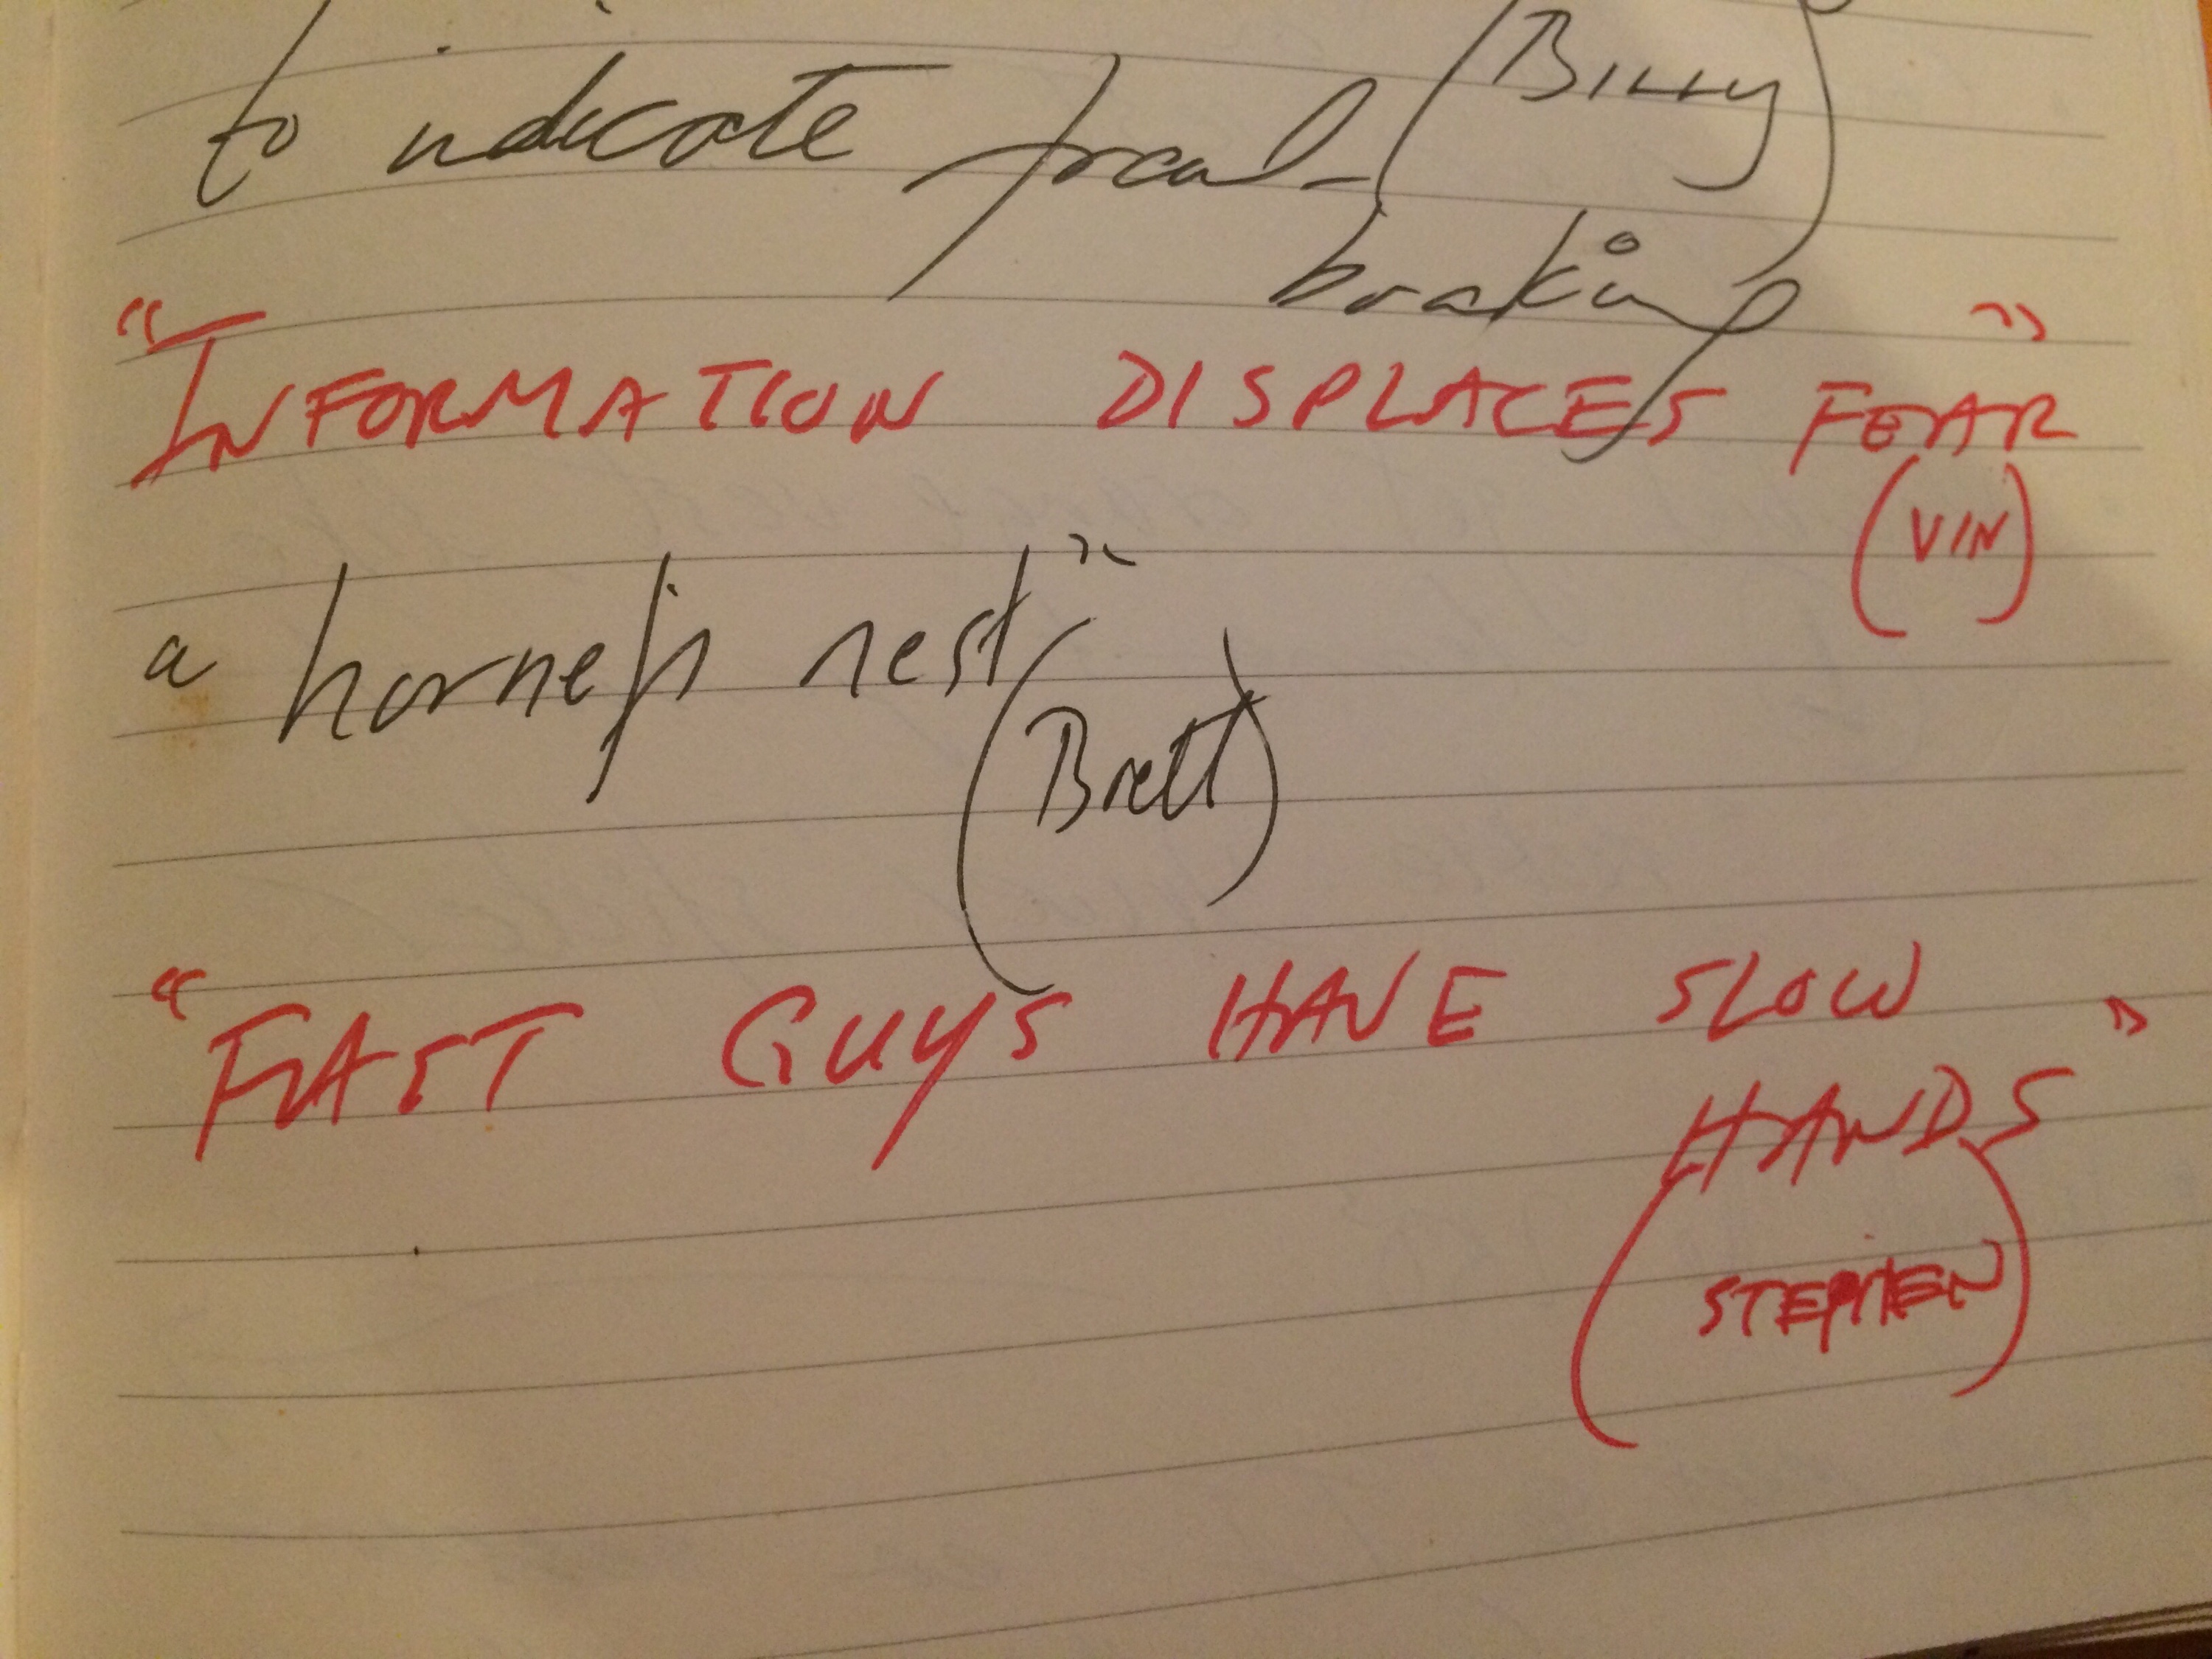 (Billy)
to indicate trail-
braking
"INFORMATION DISPLACES FEAR"
(VIN)
a hornet's nest"
(Brett)
"FAST GUYS HAVE SLOW
HANDS"
(STEPHEN)